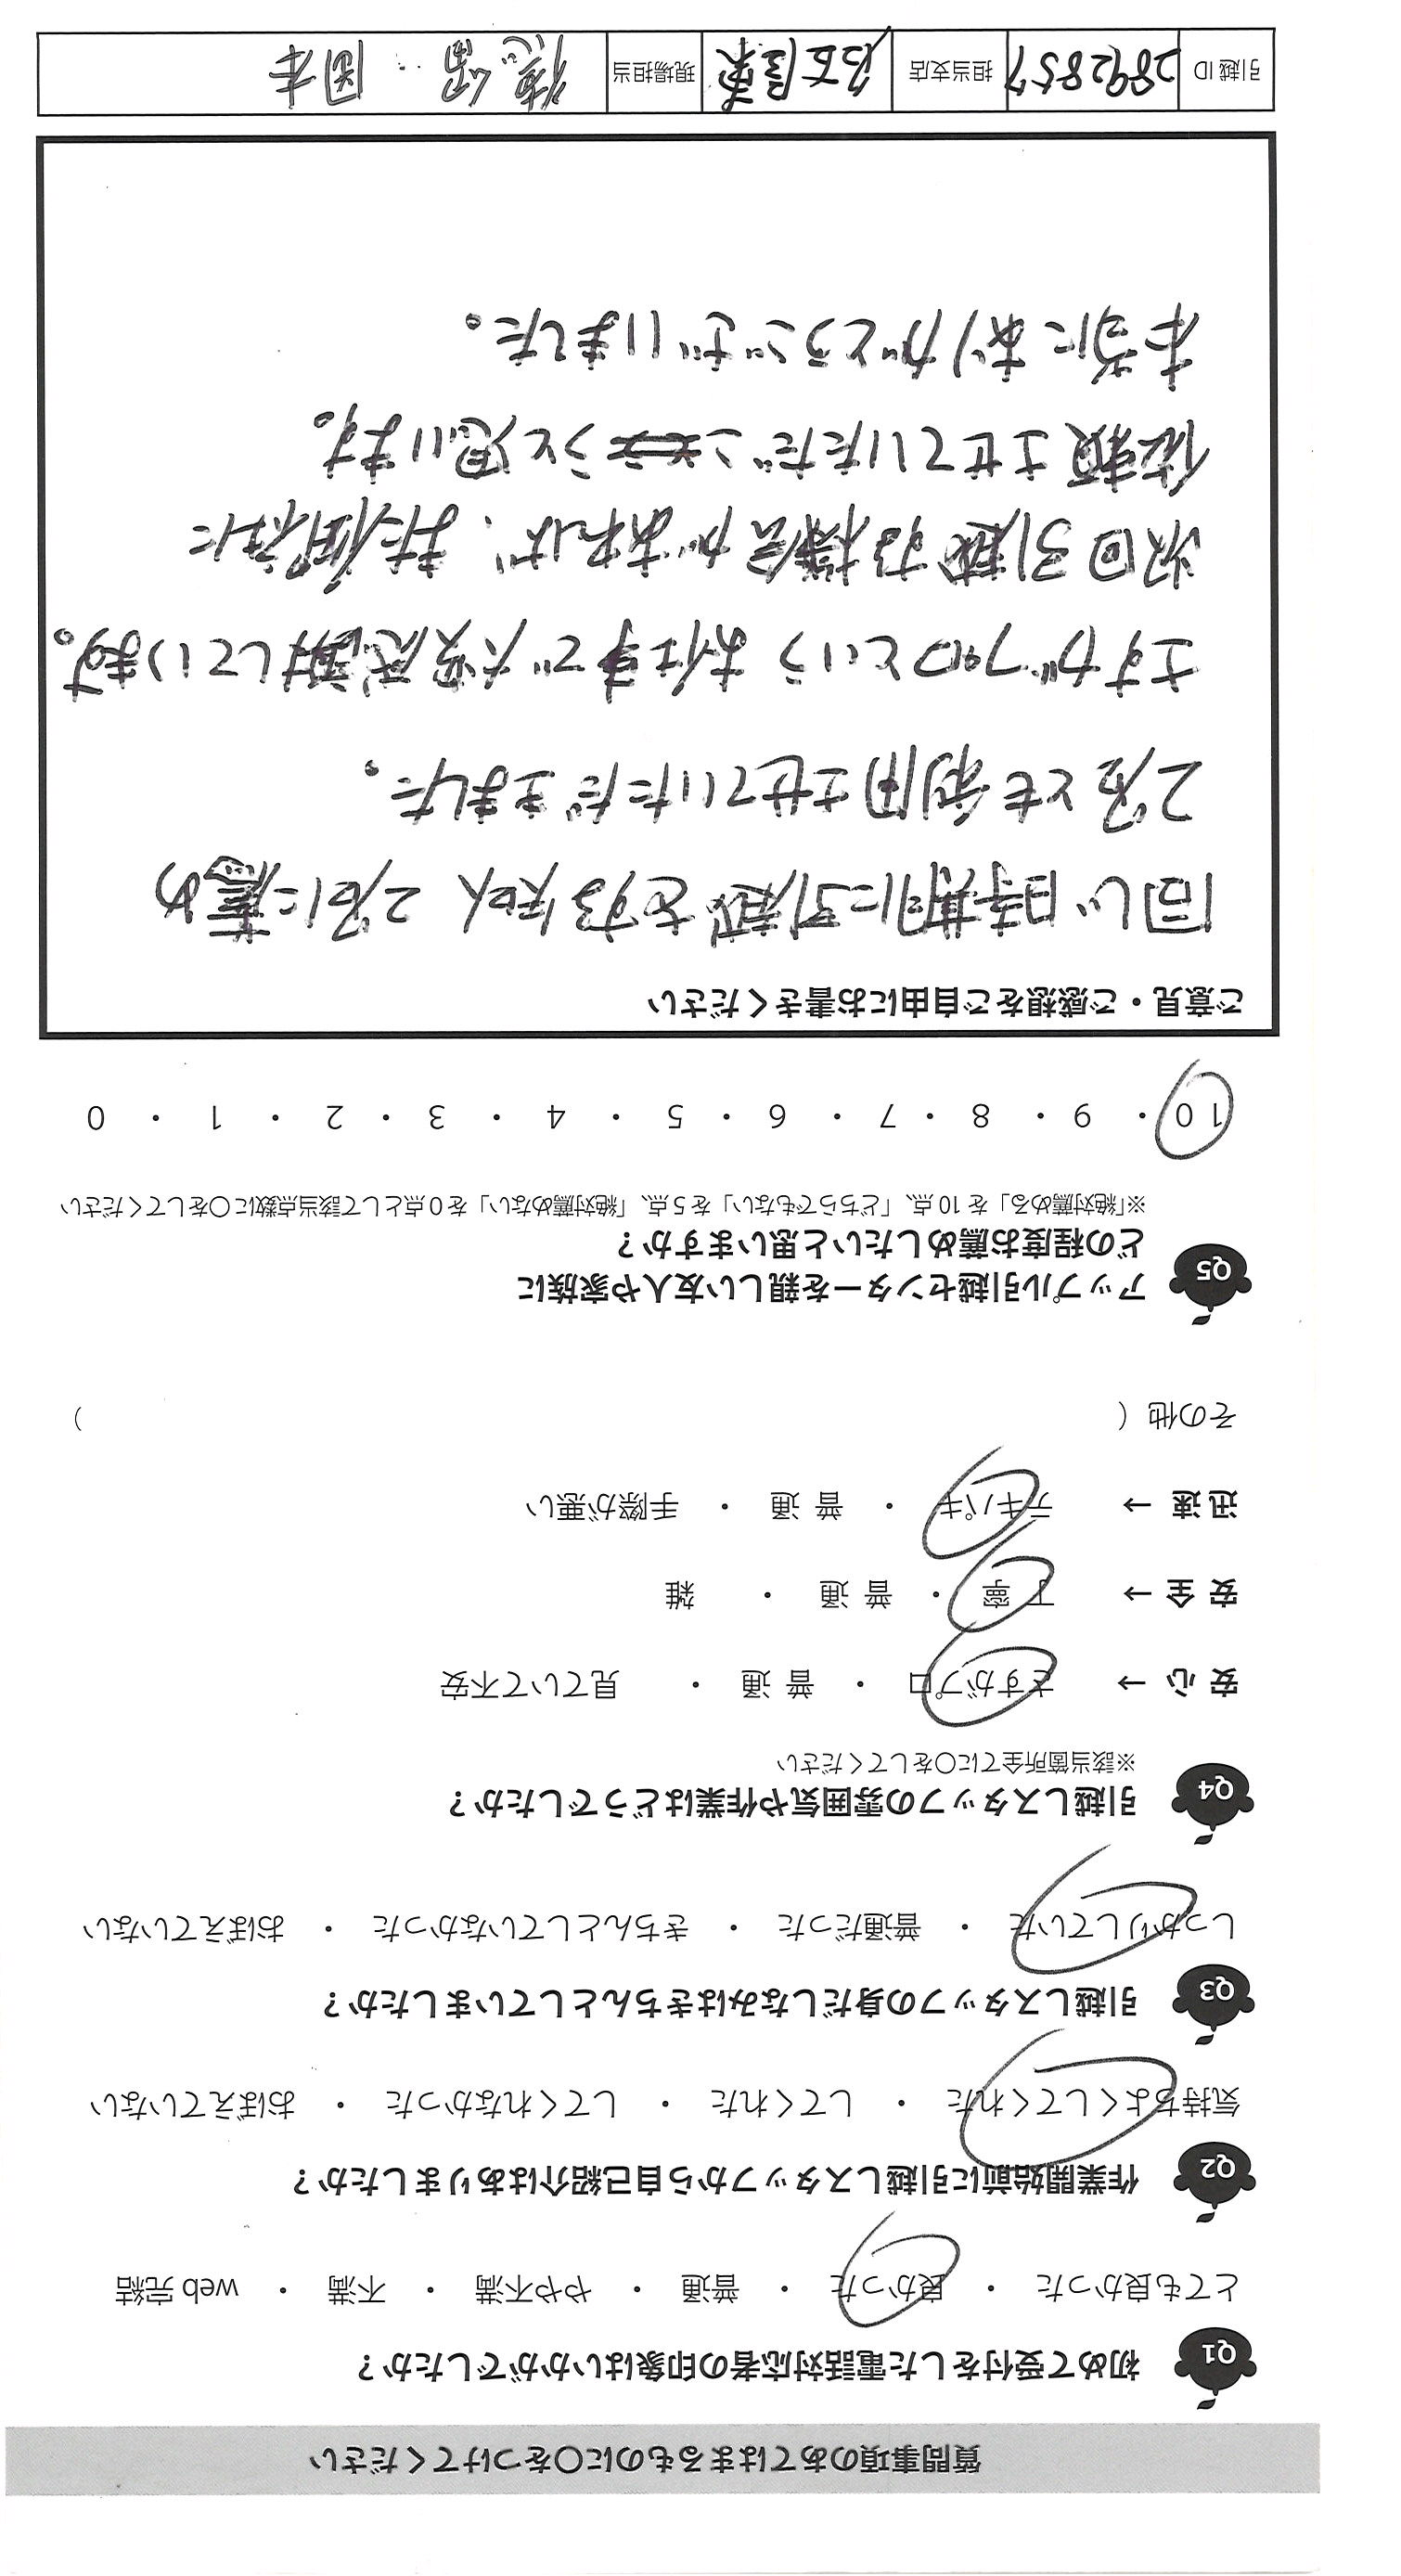 質問事項のあてはまるものに〇をつけてください
Q1 初めて受付をした電話対応者の印象はいかがでしたか？
とても良かった ・ 良かった ・ 普通 ・ やや不満 ・ 不満 ・ web 完結
Q2 作業開始前に引越しスタッフから自己紹介はありましたか？
気持ちよくしてくれた ・ してくれた ・ してくれなかった ・ おぼえていない
Q3 引越しスタッフの身だしなみはきちんとしていましたか？
しっかりしていた ・ 普通だった ・ きちんとしていなかった ・ おぼえていない
Q4 引越しスタッフの雰囲気や作業はどうでしたか？
※該当箇所全てに〇をしてください
安心 → さすがプロ ・ 普通 ・ 見ていて不安
安全 → 丁寧 ・ 普通 ・ 雑
迅速 → テキパキ ・ 普通 ・ 手際が悪い
その他（ ）
Q5 アップル引越センターを親しい友人や家族に
どの程度お薦めしたいと思いますか？
※「絶対薦める」を 10 点、「どちらでもない」を 5 点、「絶対薦めない」を 0 点として該当点数に〇をしてください
10 ・ 9 ・ 8 ・ 7 ・ 6 ・ 5 ・ 4 ・ 3 ・ 2 ・ 1 ・ 0
ご意見・ご感想をご自由にお書きください
同じ時期に引越をする知人 2名に薦め
2名とも利用させていただきました。
さすがプロという お仕事で大変感謝しています。
次回引越する機会があれば、また御社に
依頼させていただこうと思います。
本当にありがとうございました。
引越ID 2892857 担当支店 名古屋東 現場担当 徳留 岡本